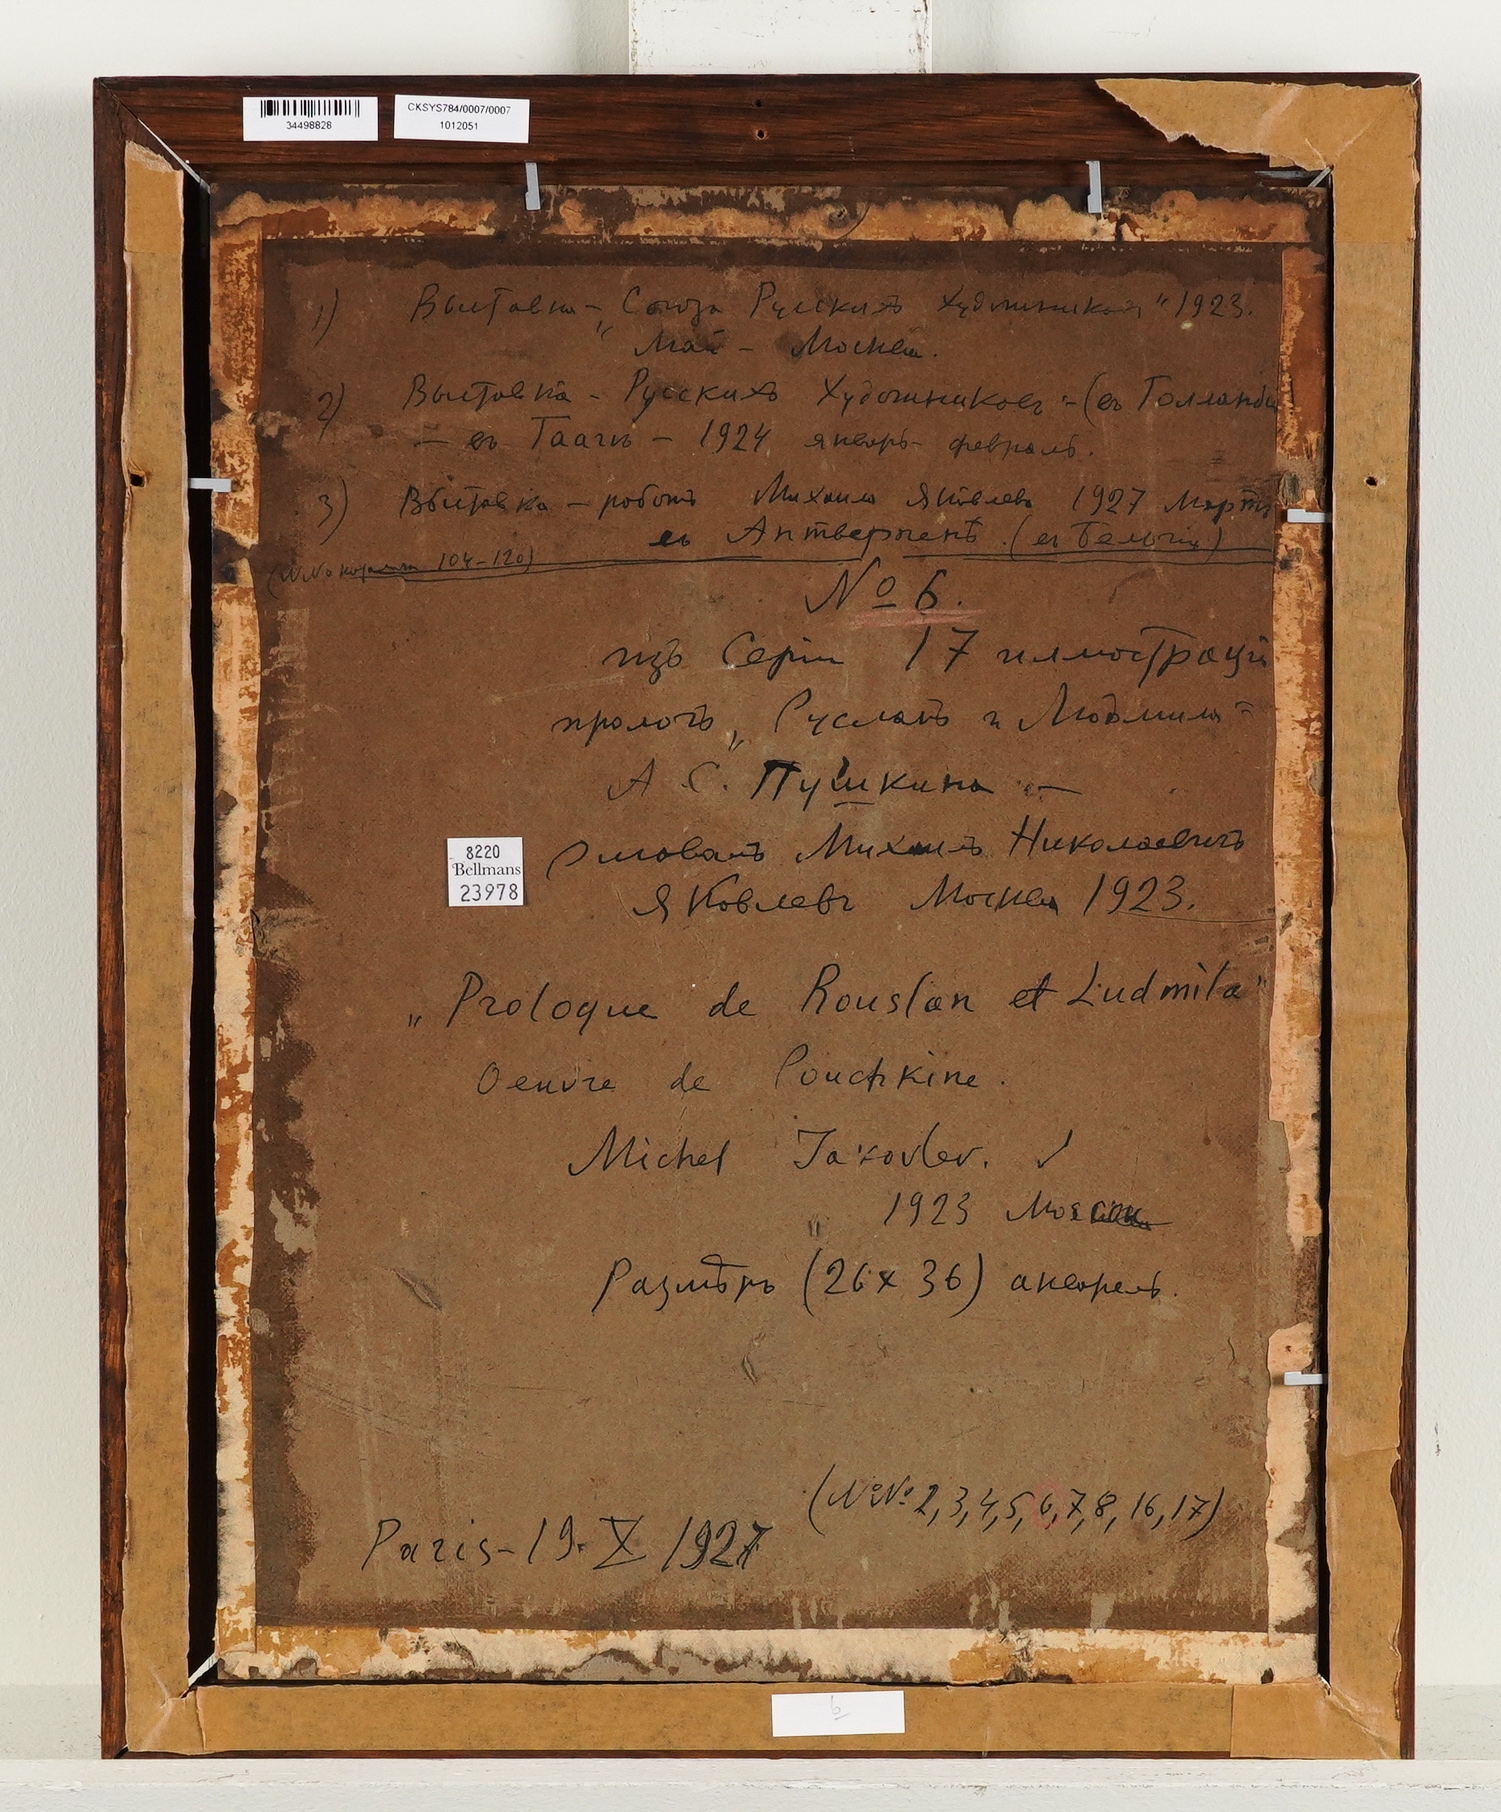 34498828
CKSYS784/0007/0007
1012051
1) Выставка - „Союза Русскихъ Художниковъ" 1923.
Май - Москва.
2) Выставка - Русскихъ Художниковъ - (въ Голландіи
- въ Гаагѣ - 1924 январь февраль.
3) Выставка - работъ Михаила Яковлева 1927 Мартъ
въ Антверпенѣ. (въ Бельгіи)
(№№ 104-120)
№ 6.
изъ Серіи 17 иллюстрацій
прологъ „Русланъ и Людмила"
А. С. Пушкина -
рисовалъ Михаилъ Николаевичъ
Яковлевъ Москва 1923.
8220
Bellmans
23978
„Prologue de Rouslan et Ludmila"
Oeuvre de Pouchkine.
Michel Jakovlev. ✓
1923
Размѣръ (26 x 36) акварель.
(№№ 2, 3, 4, 5, 6, 7, 8, 16, 17)
Paris - 19. X 1927
6